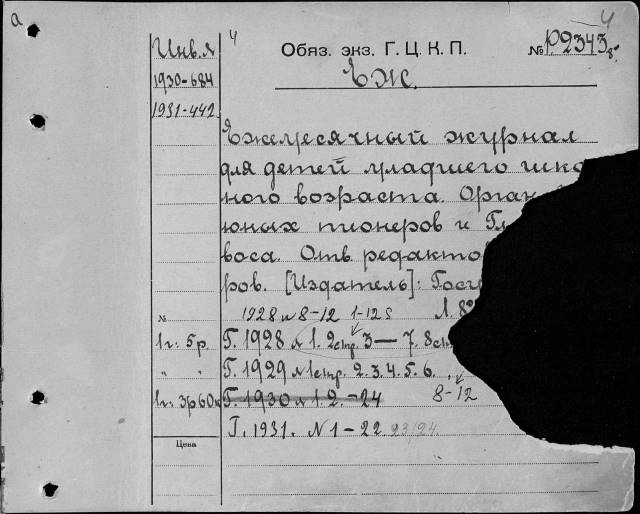 а
4
Инв.я
4
Обяз. экз. Г. Ц. К. П.
№ Р.2343
1930-684
ЕЖ.
1931-442
Ежемесячный журнал
для детей младшего шко
ного возраста. Орган
юных пионеров и Гл
воса. Отв. редакто
ров. [Издатель]: Госу
№ 1928 № 8-12 1-12 Л. 82
1г. 5р. Г. 1928 № 1. 2 стр. 3 — 7. 8
" " Г. 1929 № 1 стр. 2. 3. 4. 5. 6.
1г. 3р60к Г. 1930 № 1. 2. - 24 8-12
Г. 1931. № 1 - 22. 23/24.
Цена